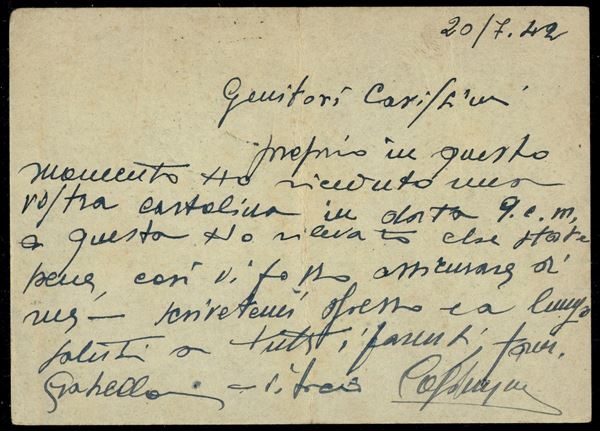 20/7.42
Genitori Carissimi
proprio in questo
momento ho ricevuto una
vostra cartolina in data 9.c.m,
a questa ho rilevato che state
bene, così vi posso assicurare di
me — scrivetemi spesso e a lungo
saluti a tutti i parenti,